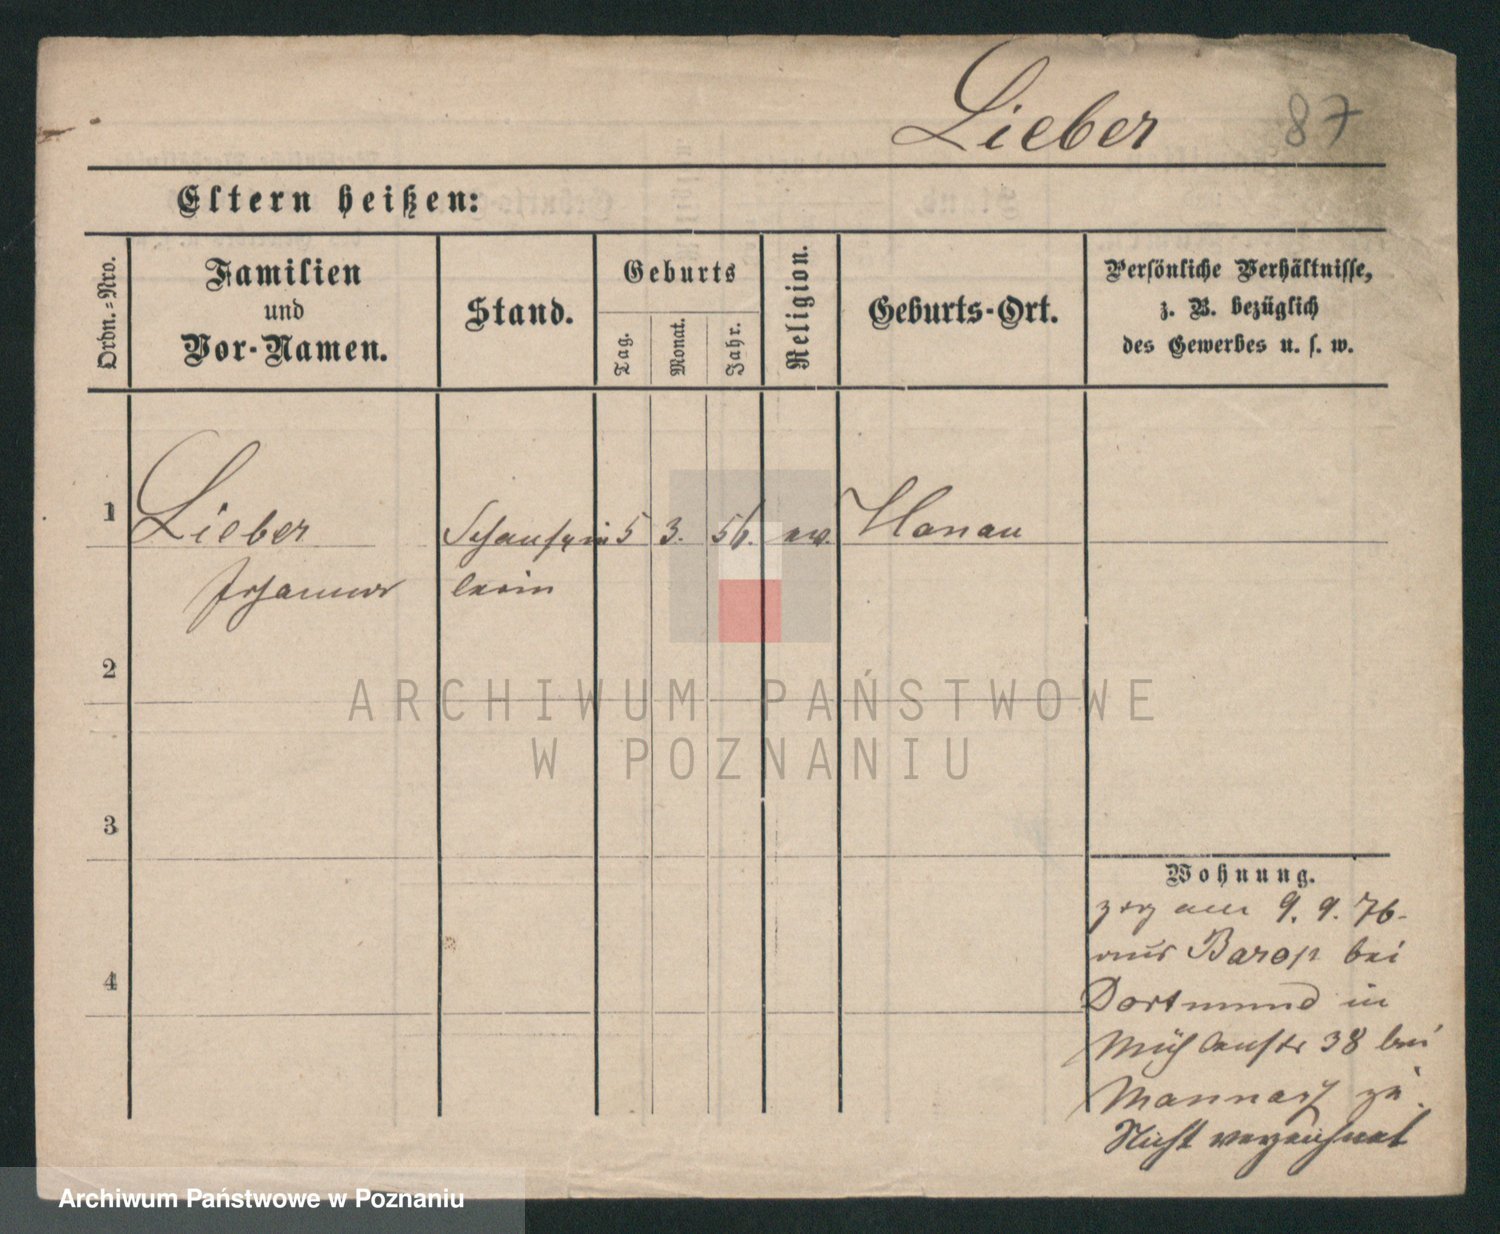 Lieber 87
Eltern heißen:
Ordn.-Nro.
Familien
und
Vor-Namen.
Stand.
Geburts
Tag.
Monat.
Jahr.
Religion.
Geburts-Ort.
Persönliche Verhältnisse,
z. B. bezüglich
des Gewerbes u. s. w.
1 Lieber Schauspie 5 3. 56. ev. Hanau
Johannes lerin
2
3
4
Wohnung.
zog am 9. 9. 76.
aus Barop bei
Dortmund in
Mühlenstr 38 bei
zu.
Nicht verzeichnet
ARCHIWUM PAŃSTWOWE
W POZNANIU
Archiwum Państwowe w Poznaniu